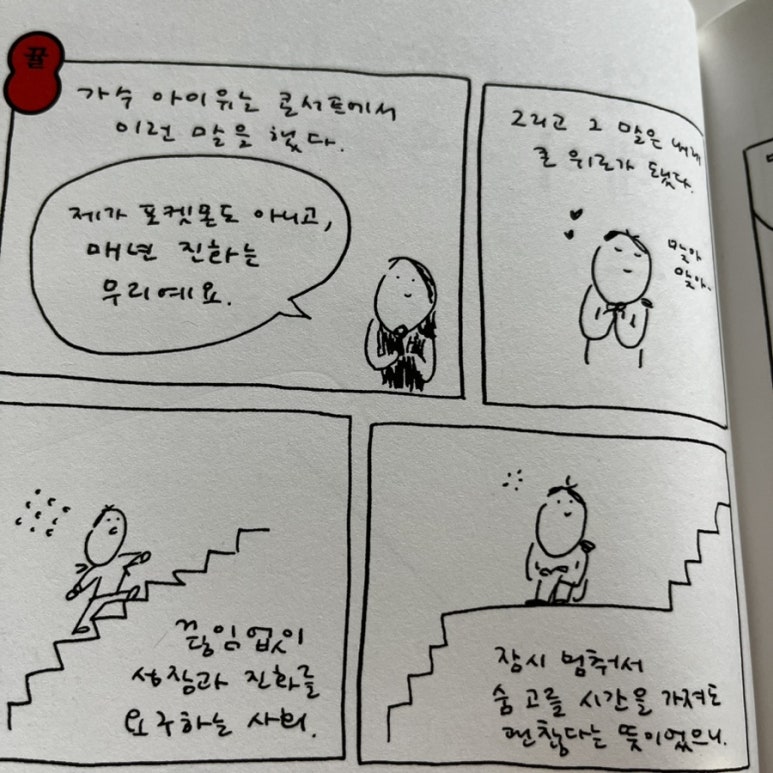 꿀
가수 아이유는 콘서트에서
이런 말을 했다.
제가 포켓몬도 아니고,
매년 진화하는
우리예요.
그리고 그 말은 내게
큰 위로가 됐다.
맞아
맞아.
끊임없이
성장과 진화를
요구하는 사회.
잠시 멈춰서
숨 고를 시간을 가져도
괜찮다는 뜻이었으니.